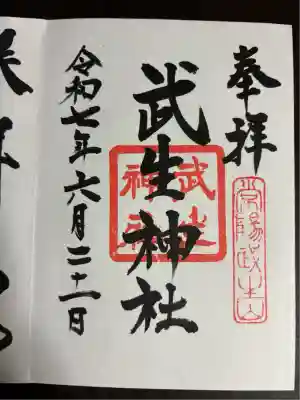 奉拝
常陽武生山
武生神社
武生神社
令和七年六月二十一日